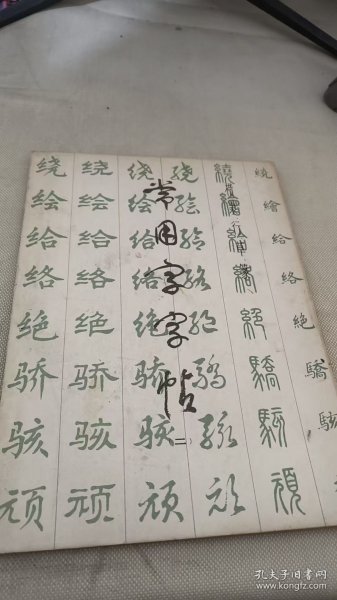 常用字字帖
二
绕 绕 绕 绕 繞 繞
绘 绘 绘 绘 繪 繪
给 给 给 给 給 給
络 络 络 络 絡 絡
绝 绝 绝 绝 絕 絶
骄 骄 骄 驕 驕 驕
骇 骇 骇 骇 駭 駭
顽 顽 顽 顽 頑
孔夫子旧书网